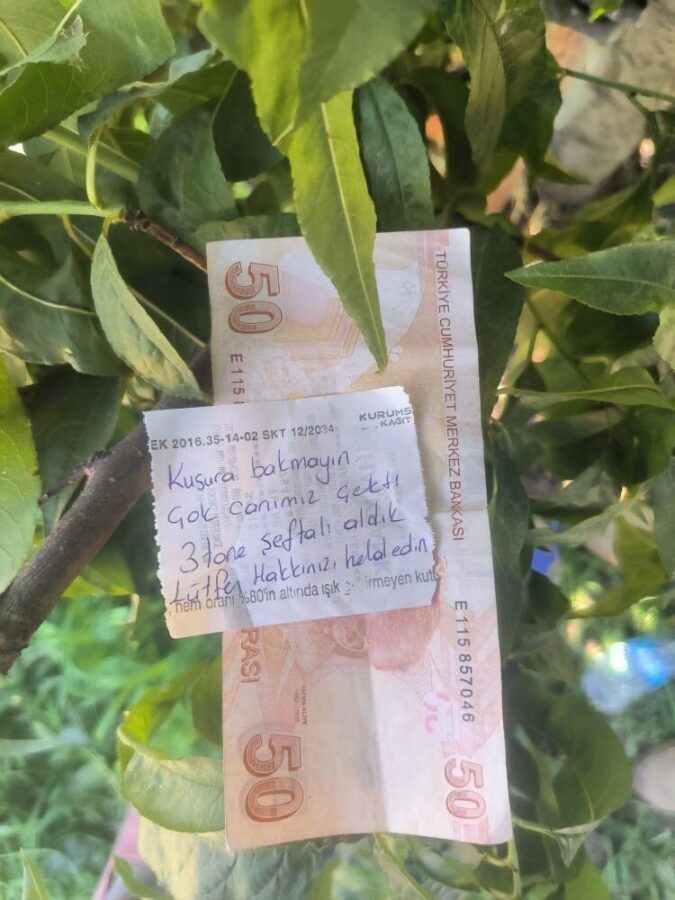 50
E 115 8
TÜRKİYE CUMHURİYET MERKEZ BANKASI
EK 2016.35-14-02 SKT 12/2034
KAĞIT
Kusura bakmayın
Çok canımız çekti
3 tane şeftali aldık
Lütfen Hakkınızı helal edin
nem oranı %80'in altında ışık
kutu
E 115 857046
RASI
50
50